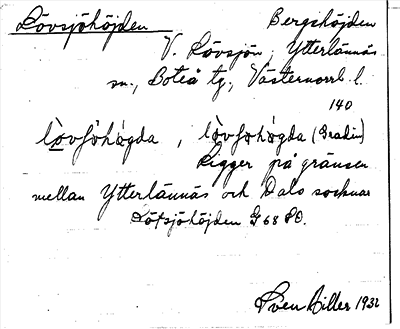 Lövsjöhöjden Bergshöjden
V. Lövsjön, Ytterlännäs
sn., Boteå tg, Västernorrl. l.
140
lòvʃöhögda, lòvʃöhögda (Gradin)
Ligger på gränsen
mellan Ytterlännäs och Dals socknar
Lötsjöhöjden G 68 SO.
Sven Hiller 1932